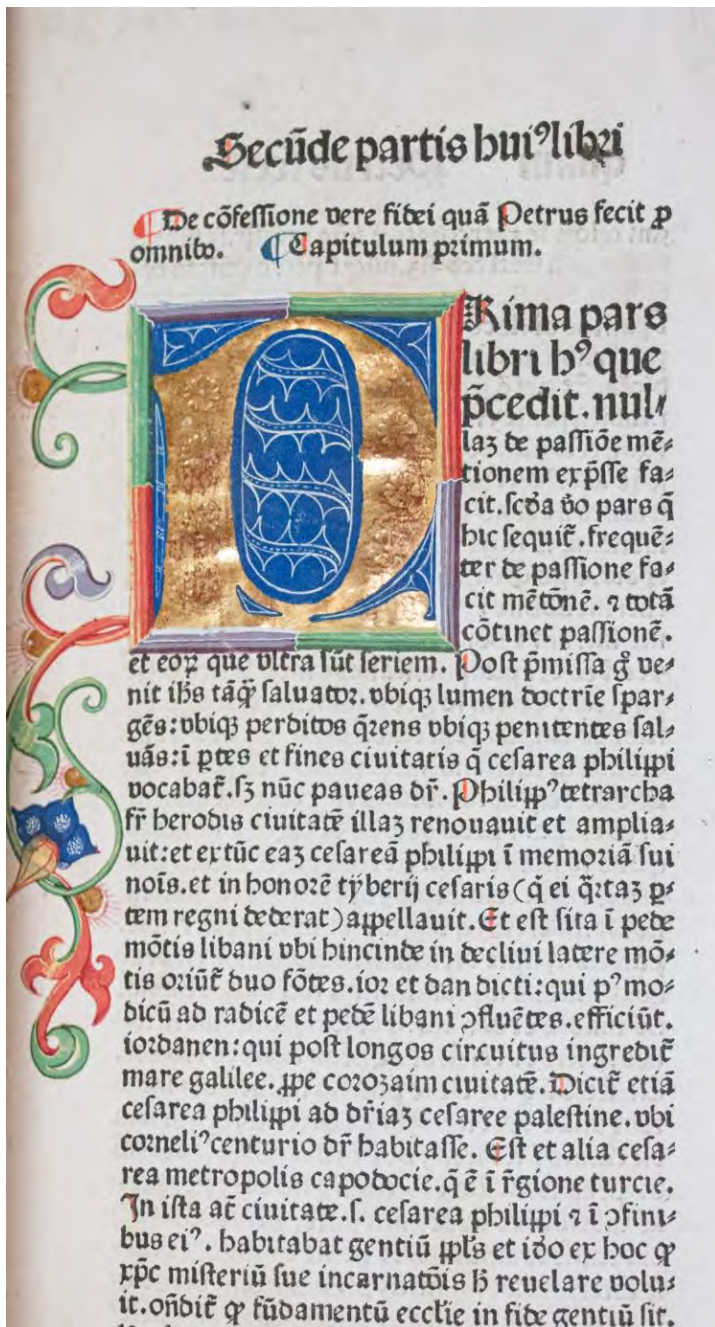 Secūde partis huiꝰ libri
¶ De cōfessione vere fidei quā Petrus fecit ꝓ
omnibꝰ. ¶ Capitulum primum.
PRima pars
libri hꝰ que
p̄cedit. nul⸗
laꝫ de passiōe mē⸗
tionem exp̄sse fa⸗
cit. scďa ꝟo pars q̄
hic sequit̄. frequē⸗
ter de passione fa⸗
cit mētōnē. ⁊ totā
cōtinet passionē.
et eoꝝ que vltra sūt seriem. Post p̄missa gͦ ve⸗
nit ihs̄ tāꝙ̄ saluator. vbiqꝫ lumen doctrīe spar⸗
gēs: vbiqꝫ perditos q̄rens vbiqꝫ penitentes sal⸗
uās: ī ꝑtes et fines ciuitatis q̄ cesarea philippi
vocabat̄. sꝫ nūc paueas dr̄. Philippꝰ tetrarcha
fr̄ herodis ciuitatē illaꝫ renouauit et amplia⸗
uit: et extūc eaꝫ cesareā philippi ī memoriā sui
noīs. et in honorē tẏberij cesaris (q̄ ei q̄rtaꝫ ꝑ⸗
tem regni dederat) appellauit. Et est sita ī pede
mōtis libani vbi hincinde in decliui latere mō⸗
tis oriūt̄ duo fōtes. ior et dan dicti: qui pꝰ mo⸗
dicū ad radicē et pedē libani ꝯfluētes. efficiūt.
iordanen: qui post longos circuitus ingredit̄
mare galilee. ꝓpe corozaim ciuitatē. Dicit̄ etiā
cesarea philippi ad dr̄iaꝫ cesaree palestine. vbi
corneliꝰ centurio dr̄ habitasse. Est et alia cesa⸗
rea metropolis capodocie. q̄ ē ī r̄gione turcie.
In ista at̄ ciuitate. s. cesarea philippi ⁊ ī ꝯfini⸗
bus eiꝰ. habitabat gentiū ppl̄s et iďo ex hoc ꝙ
xp̄c misteriū sue incarnatōis h̄ reuelare volu⸗
it. oñdit̄ ꝙ fūdamentū eccl̄ie in fide gentiū sit.